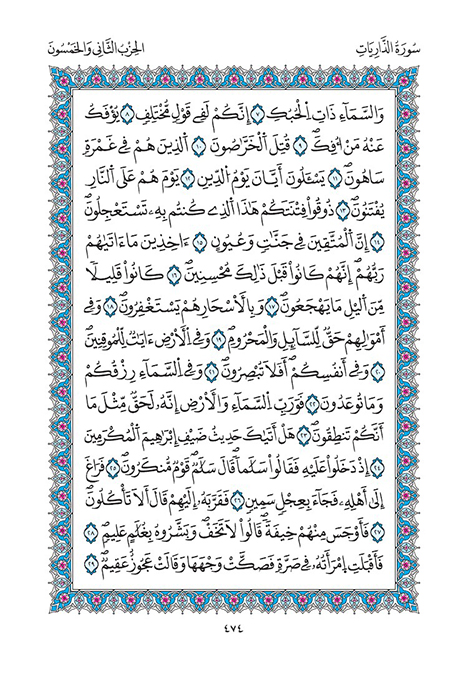 سُورَةُ الذَّارِيَاتِ
الحِزْبُ الثَّانِي وَالخَمْسُونَ
وَالسَّمَآءِ ذَاتِ الْحُبُكِ ٧ إِنَّكُمْ لَفِے قَوْلٖ مُّخْتَلِفٖ ٨ يُوفَكُ
عَنْهُ مَنْ اُفِكَۖ ٩ قُتِلَ اَ۬لْخَرَّٰصُونَ ١٠ اَ۬لذِينَ هُمْ فِے غَمْرَةٖ
سَاهُونَۖ ١١ يَسْـَٔلُونَ أَيَّانَ يَوْمُ اُ۬لدِّينِۖ ١٢ يَوْمَ هُمْ عَلَى اَ۬لنّ۪ارِ
يُفْتَنُونَۖ ١٣ ذُوقُواْ فِتْنَتَكُمْ هَٰذَا اَ۬لذِے كُنتُم بِهِۦ تَسْتَعْجِلُونَۖ
١٤ إِنَّ اَ۬لْمُتَّقِينَ فِے جَنَّٰتٖ وَعُيُونٍ ١٥ ءَاخِذِينَ مَآ ءَات۪ىٰهُمْ
رَبُّهُمُۥٓۖ إِنَّهُمْ كَانُواْ قَبْلَ ذَٰلِكَ مُحْسِنِينَۖ ١٦ كَانُواْ قَلِيلاٗ
مِّنَ اَ۬ليْلِ مَا يَهْجَعُونَۖ ١٧ وَبِالَاسْح۪ارِ هُمْ يَسْتَغْفِرُونَۖ ١٨ وَفِےٓ
أَمْوَٰلِهِمْ حَقّٞ لِّلسَّآئِلِ وَالْمَحْرُومِۖ ١٩ وَفِے اِ۬لَارْضِ ءَايَٰتٞ لِّلْمُوقِنِينَ
٢٠ وَفِےٓ أَنفُسِكُمُۥٓۖ أَفَلَا تُبْصِرُونَۖ ٢١ وَفِے اِ۬لسَّمَآءِ رِزْقُكُمْ
وَمَا تُوعَدُونَۖ ٢٢ فَوَرَبِّ اِ۬لسَّمَآءِ وَالَارْضِ إِنَّهُۥ لَحَقّٞ مِّثْلَ مَآ
أَنَّكُمْ تَنطِقُونَۖ ٢٣ هَلَ اَت۪ىٰكَ حَدِيثُ ضَيْفِ إِبْرَٰهِيمَ اَ۬لْمُكْرَمِينَ
٢٤ إِذْ دَخَلُواْ عَلَيْهِ فَقَالُواْ سَلَٰماٗۖ قَالَ سَلَٰمٞ قَوْمٞ مُّنكَرُونَۖ ٢٥ فَرَاغَ
إِلَىٰٓ أَهْلِهِۦ فَجَآءَ بِعِجْلٖ سَمِينٖ ٢٦ فَقَرَّبَهُۥٓ إِلَيْهِمْ قَالَ أَلَا تَاكُلُونَۖ
٢٧ فَأَوْجَسَ مِنْهُمْ خِيفَةٗۖ قَالُواْ لَا تَخَفْۖ وَبَشَّرُوهُ بِغُلَٰمٍ عَلِيمٖۖ ٢٨
فَأَقْبَلَتِ اِ۪مْرَأَتُهُۥ فِے صَرَّةٖ فَصَكَّتْ وَجْهَهَا وَقَالَتْ عَجُوزٌ عَقِيمٞۖ ٢٩
٤٧٤